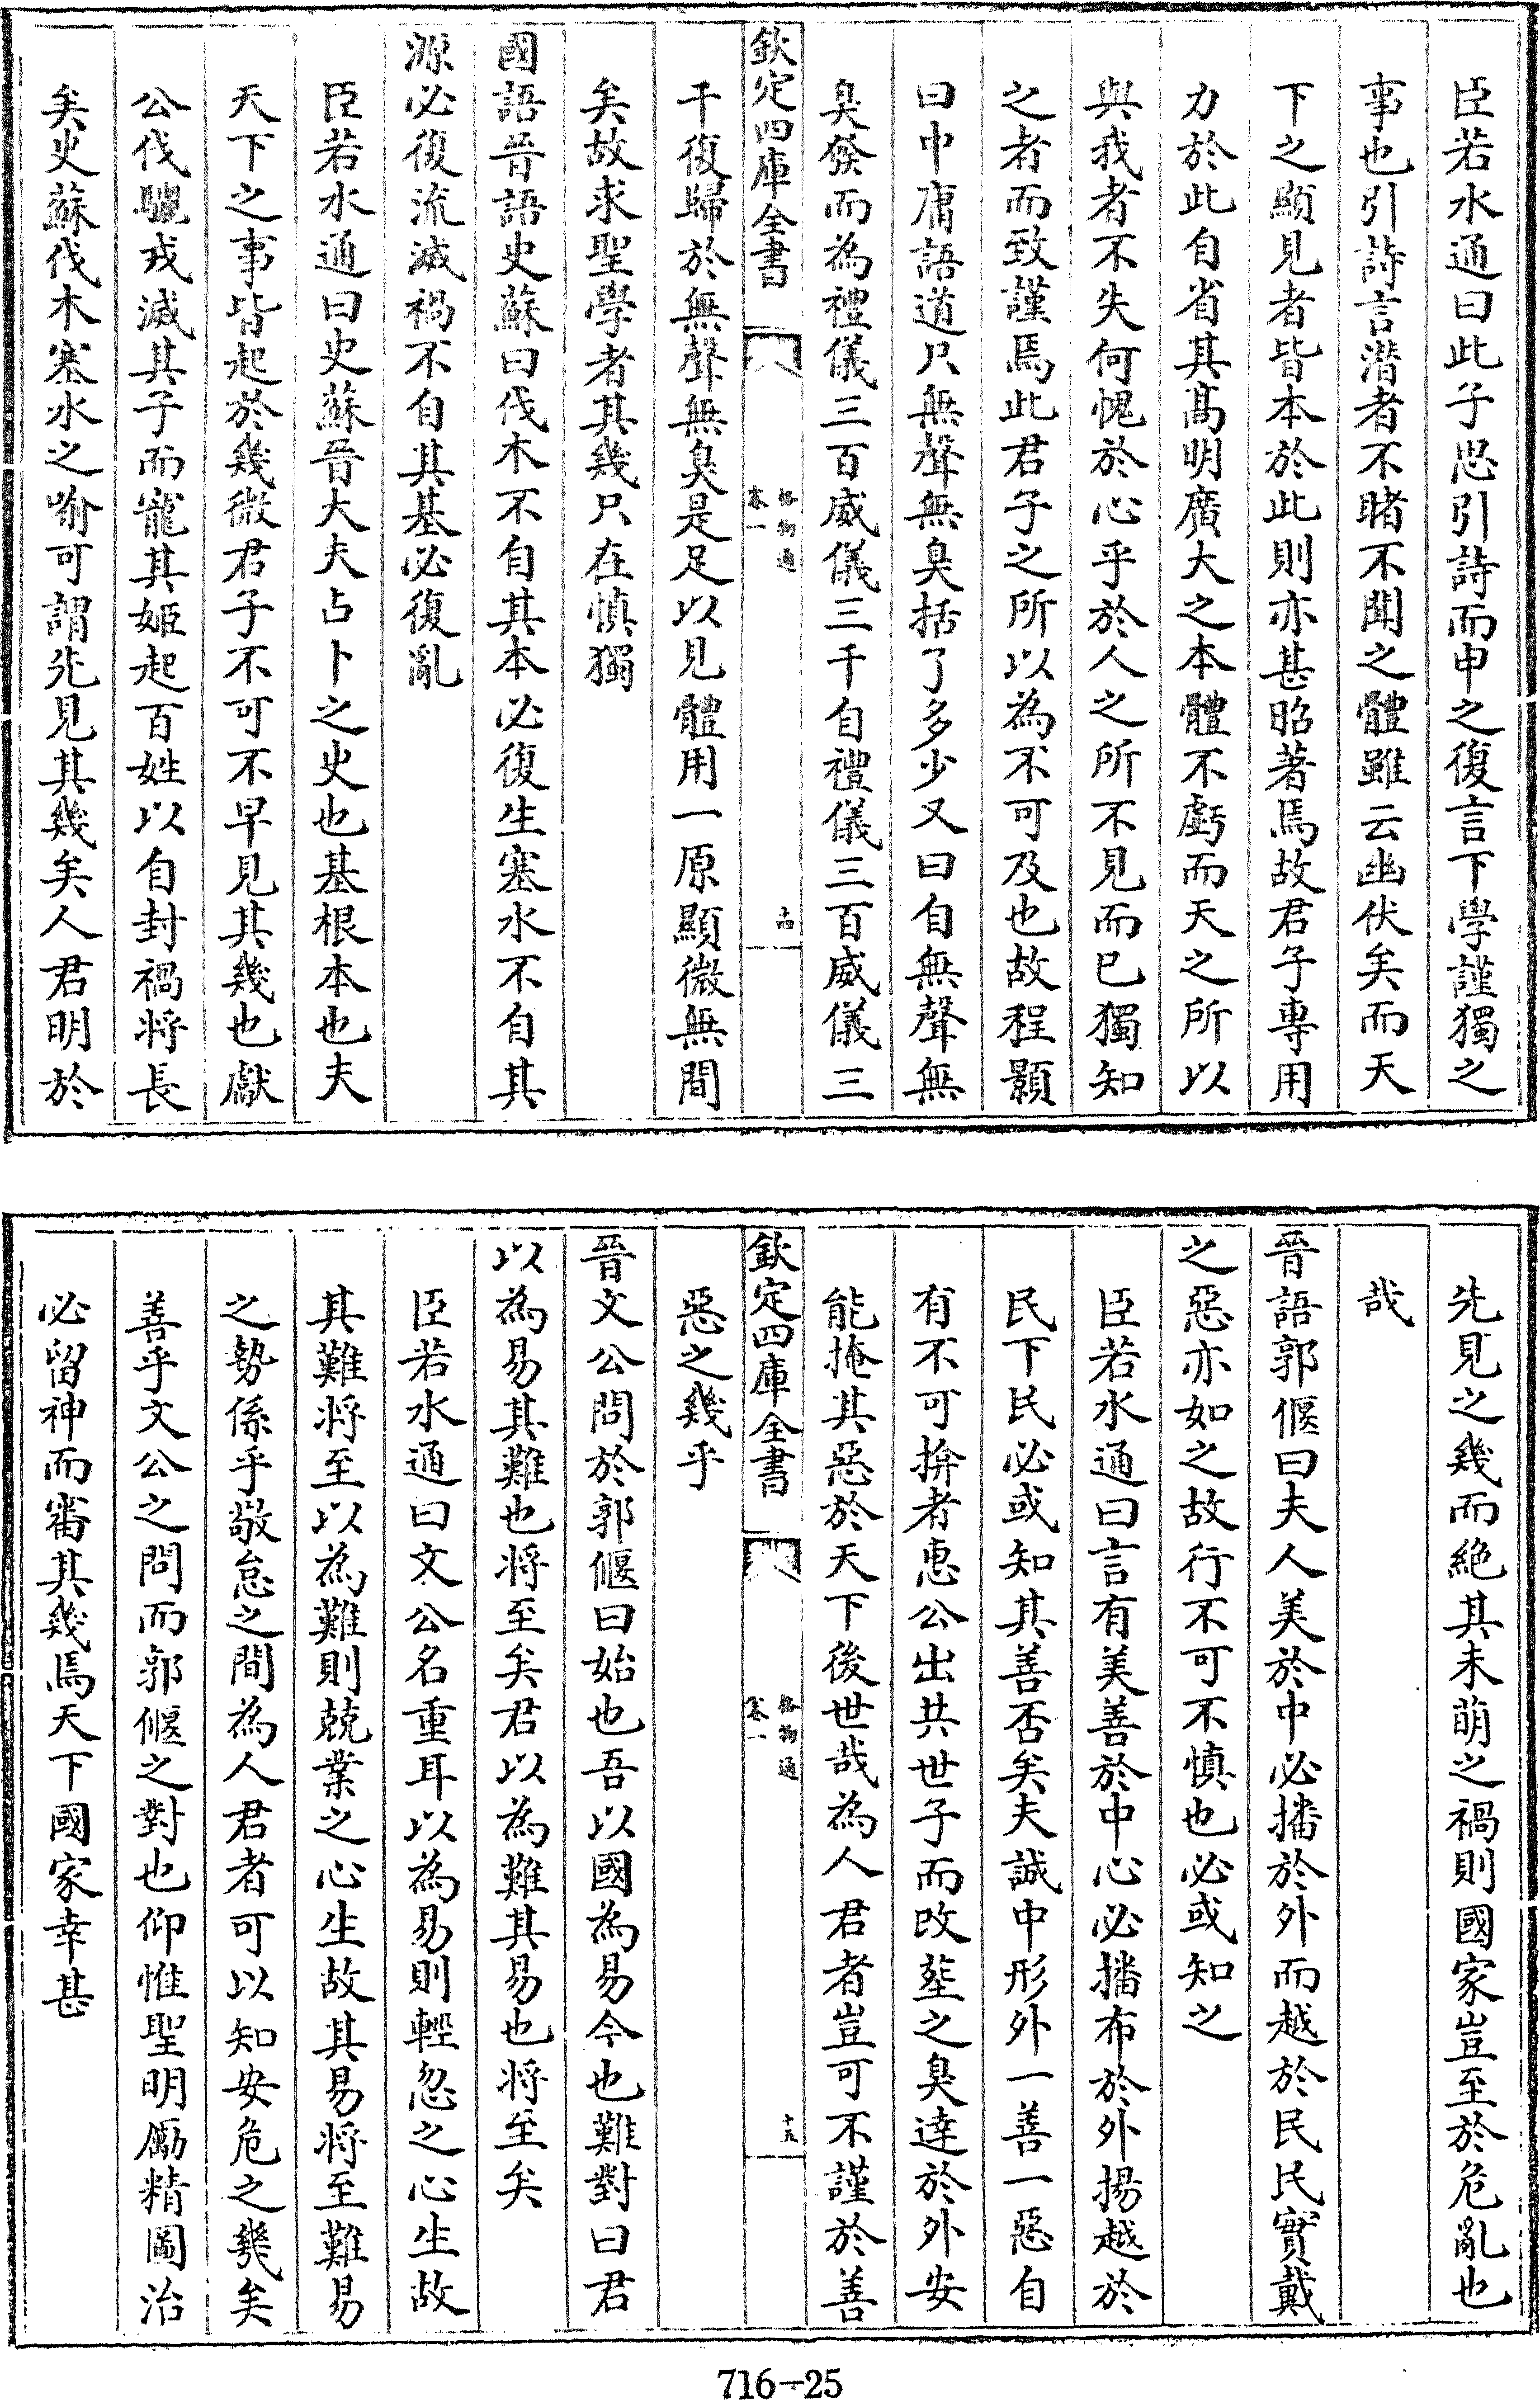 臣若水通曰此子思引詩而申之復言下學謹獨之
事也引詩言潛者不睹不聞之體雖云幽伏矣而天
下之顯見者皆本於此則亦甚昭著焉故君子專用
力於此自省其髙明廣大之本體不虧而天之所以
與我者不失何愧於心乎於人之所不見而已獨知
之者而致謹焉此君子之所以為不可及也故程顥
曰中庸語道只無聲無臭括了多少又曰自無聲無
臭發而為禮儀三百威儀三千自禮儀三百威儀三
欽定四庫全書
格物通
卷一
十四
千復歸於無聲無臭是足以見體用一原顯微無間
矣故求聖學者其幾只在慎獨
國語晉語史蘇曰伐木不自其本必復生塞水不自其
源必復流滅禍不自其基必復亂
臣若水通曰史蘇晉大夫占卜之史也基根本也夫
天下之事皆起於幾微君子不可不早見其幾也獻
公伐驪戎滅其子而寵其姬起百姓以自封禍將長
矣史蘇伐木塞水之喻可謂先見其幾矣人君明於
先見之幾而絶其未萌之禍則國家豈至於危亂也
哉
晉語郭偃曰夫人美於中必播於外而越於民民實戴
之惡亦如之故行不可不慎也必或知之
臣若水通曰言有美善於中心必播布於外揚越於
民下民必或知其善否矣夫誠中形外一善一惡自
有不可揜者惠公出共世子而改塟之臭達於外安
能掩其惡於天下後世哉為人君者豈可不謹於善
欽定四庫全書
格物通
卷一
十五
惡之幾乎
晉文公問於郭偃曰始也吾以國為易今也難對曰君
以為易其難也將至矣君以為難其易也將至矣
臣若水通曰文公名重耳以為易則輕忽之心生故
其難將至以為難則兢業之心生故其易將至難易
之勢係乎敬怠之間為人君者可以知安危之幾矣
善乎文公之問而郭偃之對也仰惟聖明勵精圖治
必留神而審其幾焉天下國家幸甚
716-25